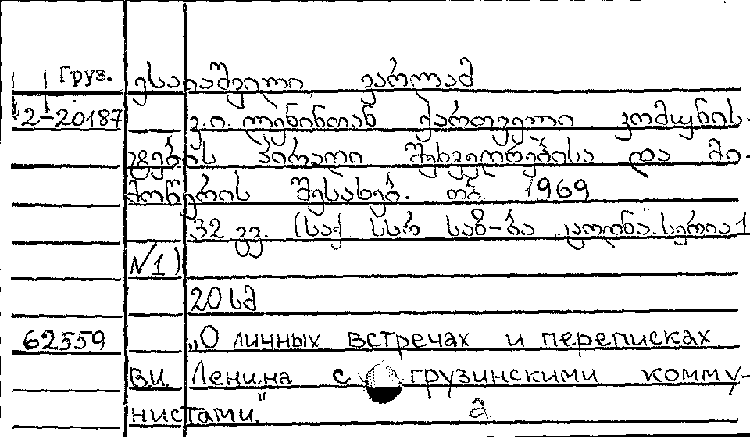 Груз. ესაიაშვილი ვარლამ
2-20187 ვ.ი. ლენინთან ქართველი კომუნის-
ტების პირადი შეხვედრებისა და მი-
მოწერის შესახებ. თბ 1969
32 გვ. (საქ სსრ საზ-ბა ცოდნა. სერია 1
№1)
20 სმ
62559 „О личных встречах и переписках
В.И. Ленина с грузинскими комму-
нистами."